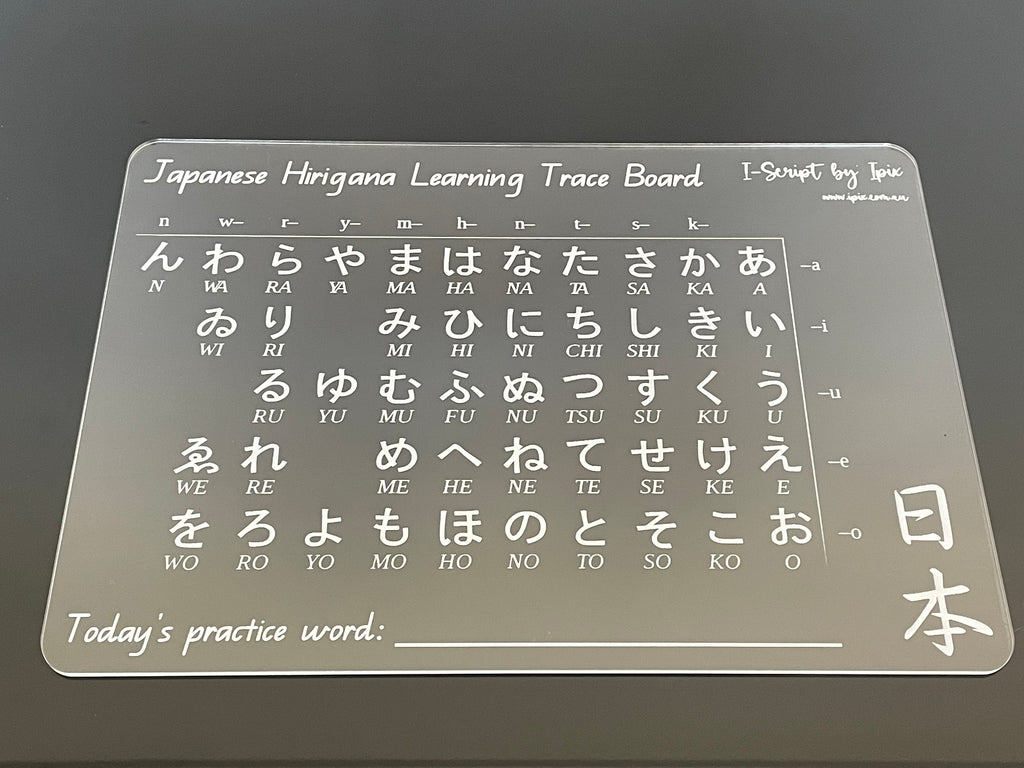 Japanese Hirigana Learning Trace Board
I-Script by Ipix
www.ipix.com.au
n w– r– y– m– h– n– t– s– k–
ん わ ら や ま は な た さ か あ –a
N WA RA YA MA HA NA TA SA KA A
ゐ り み ひ に ち し き い –i
WI RI MI HI NI CHI SHI KI I
る ゆ む ふ ぬ つ す く う –u
RU YU MU FU NU TSU SU KU U
ゑ れ め へ ね て せ け え –e
WE RE ME HE NE TE SE KE E
を ろ よ も ほ の と そ こ お –o
WO RO YO MO HO NO TO SO KO O
日
本
Today's practice word: